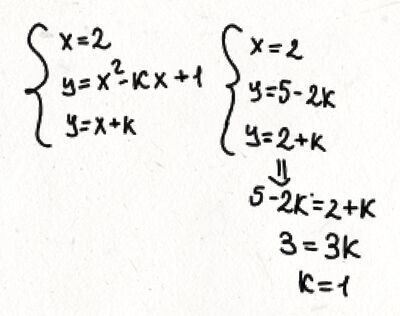 x=2
y=x²-kx+1
y=x+k
x=2
y=5-2k
y=2+k
⇓
5-2k=2+k
3=3k
k=1